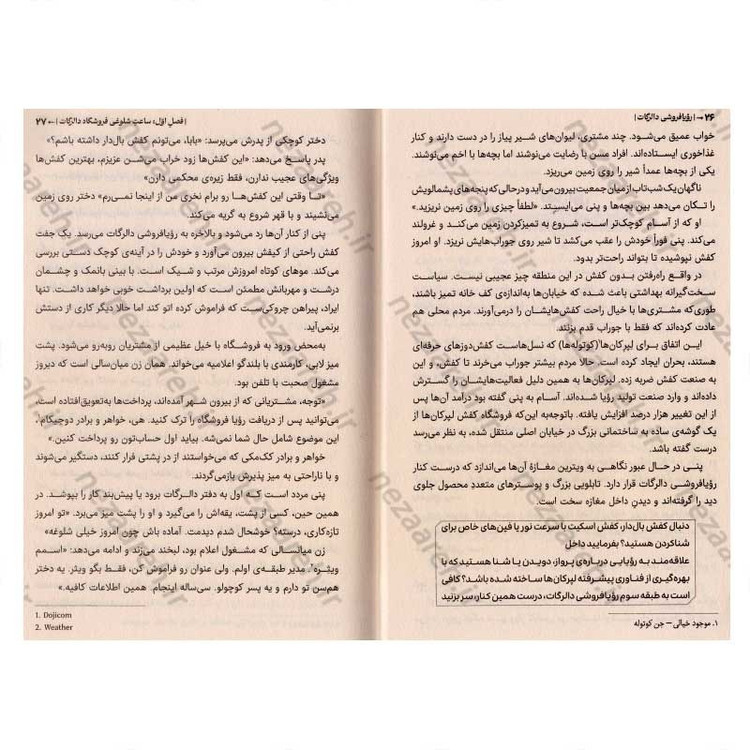 ۲۶ ← | رؤیافروشی دالرگات |
خواب عمیق می‌شود. چند مشتری، لیوان‌های شیر پیاز را در دست دارند و کنار
غذاخوری ایستاده‌اند. افراد مسن با رضایت می‌نوشند اما بچه‌ها با اخم می‌نوشند.
یکی از بچه‌ها عمداً شیر را روی زمین می‌ریزد.
ناگهان یک شب‌تاب از میان جمعیت بیرون می‌آید و درحالی‌که پنجه‌های پشمالویش
را تکان می‌دهد بین بچه‌ها و پنی می‌ایستد. «لطفاً چیزی را روی زمین نریزید.»
او که از آسام کوچک‌تر است، شروع به تمیزکردن زمین می‌کند و غرولند
می‌کند. پنی فوراً خودش را عقب می‌کشد تا شیر روی جوراب‌هایش نریزد. او امروز
کفش نپوشیده تا بتواند راحت‌تر بدود.
در واقع راه‌رفتن بدون کفش در این منطقه چیز عجیبی نیست. سیاست
سخت‌گیرانه بهداشتی باعث شده که خیابان‌ها به‌اندازه‌ی کف خانه تمیز باشند،
طوری‌که مشتری‌ها با خیال راحت کفش‌هایشان را درمی‌آورند. مردم محلی هم
عادت کرده‌اند که فقط با جوراب قدم بزنند.
این اتفاق برای لپرکان‌ها۱(کوتوله‌ها) که نسل‌هاست کفش‌دوزهای حرفه‌ای
هستند، بحران ایجاد کرده است. حالا مردم بیشتر جوراب می‌خرند تا کفش، و این
به صنعت کفش ضربه زده. لپرکان‌ها به همین دلیل فعالیت‌هایشان را گسترش
داده‌اند و وارد صنعت تولید رؤیا شده‌اند. آسام به پنی گفته بود درآمد آن‌ها پس
از این تغییر هزار درصد افزایش یافته. باتوجه‌به این‌که فروشگاه کفش لپرکان‌ها از
یک گوشه‌ی ساده به ساختمانی بزرگ در خیابان اصلی منتقل شده، به نظر می‌رسد
درست گفته باشد.
پنی در حال عبور نگاهی به ویترین مغازهٔ آن‌ها می‌اندازد که درست کنار
رؤیافروشی دالرگات قرار دارد. تابلویی بزرگ و پوسترهای متعددِ محصول جلوی
دید را گرفته‌اند و دیدنِ داخل مغازه سخت است.
دنبال کفش بال‌دار، کفش اسکیت با سرعت نور یا فین‌های خاص برای
شناکردن هستید؟ بفرمایید داخل
علاقه‌مند به رؤیایی درباره‌ی پرواز، دویدن یا شنا هستید که با
بهره‌گیری از فناوری پیشرفته لپرکان‌ها ساخته شده باشد؟ کافی
است به طبقه سوم رؤیافروشی دالرگات، درست همین کنار، سر بزنید
۱. موجود خیالی – جن کوتوله
| فصل اوّل: ساعتِ شلوغی فروشگاه دالرگات | ← ۲۷
دختر کوچکی از پدرش می‌پرسد: «بابا، می‌تونم کفش بال‌دار داشته باشم؟»
پدر پاسخ می‌دهد: «این کفش‌ها زود خراب می‌شن عزیزم، بهترین کفش‌ها
ویژگی‌های عجیب ندارن، فقط زیره‌ی محکمی دارن»
«تا وقتی این کفش‌ها رو برام نخری من از اینجا نمی‌رم» دختر روی زمین
می‌نشیند و با قهر شروع به گریه می‌کند.
پنی از کنار آن‌ها رد می‌شود و بالاخره به رؤیافروشی دالرگات می‌رسد. یک جفت
کفش راحتی از کیفش بیرون می‌آورد و خودش را در آینه‌ی کوچک دستی بررسی
می‌کند. موهای کوتاه امروزش مرتب و شیک است. با بینی بانمک و چشمان
درشت و مهربانش مطمئن است که اولین برداشت خوبی خواهد داشت. تنها
ایراد، پیراهن چروکی‌ست که فراموش کرده اتو کند اما حالا دیگر کاری از دستش
برنمی‌آید.
به‌محض ورود به فروشگاه با خیل عظیمی از مشتریان روبه‌رو می‌شود. پشت
میز لابی، کارمندی با بلندگو اعلامیه می‌خواند. همان زن میان‌سالی است که دیروز
مشغول صحبت با تلفن بود.
«توجه، مشتریانی که از بیرون شهر آمده‌اند، پرداخت‌ها به‌تعویق‌افتاده است،
می‌توانید پس از دریافت رؤیا فروشگاه را ترک کنید. هی، خواهر و برادر دوجیکام۱،
این موضوع شامل حال شما نمی‌شه. بیاید اول حساب‌تون رو پرداخت کنین.»
خواهر و برادر کک‌مکی که می‌خواستند از در پشتی فرار کنند، دستگیر می‌شوند
و با ناراحتی به میز پذیرش بازمی‌گردند.
پنی مردد است که اول به دفتر دالرگات برود یا پیش‌بند کار را بپوشد. در
همین حین، کسی از پشت، یقه‌اش را می‌گیرد و او را پشت میز می‌برد. «تو امروز
تازه‌کاری، درسته؟ خوشحال شدم دیدمت. آماده باش چون امروز خیلی شلوغه»
زن میانسالی که مشغول اعلام بود، لبخند می‌زند و ادامه می‌دهد: «اسمم
ویثره۲ مدیر طبقه‌ی اولم. ولی عنوان رو فراموش کن، فقط بگو ویثر. یه دختر
هم‌سن تو دارم و یه پسر کوچولو. سی‌ساله اینجام. همین اطلاعات کافیه.»
1. Dojicom
2. Weather
nezaareh.ir